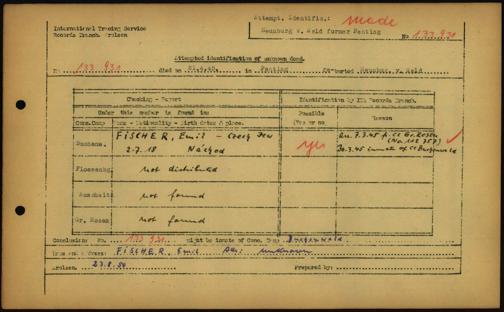 International Tracing Service
Records Branch. Arolsen
Attempt. Identific.: made
Neunburg v. Wald former Penting
No 133 931
Attempted identification of unknown dead.
No 133 931 died on 21.4.45. in Penting re-buried Neunburg v. Wald
Checking - Report
Identification by ITS Records Branch.
Under this number is found in:
Possible
Reason
Conc.Camp Name - Nationality - Birth date & place.
(Yes or no
Buchenw.
FISCHER, Emil - Czech Jew
2-7.18 Náchod
yes
7.3.45 fr. CC Gr. Rosen
inmate of CC Buchenwald
Flossenbg.
not distributed
Auschwitz
not found
Gr. Rosen
not found
Conclusion: No. 133 931 might be inmate of Conc. Camp Buchenwald
FISCHER, Emil unknown
Arolsen, 23.8.50 Prepared by: